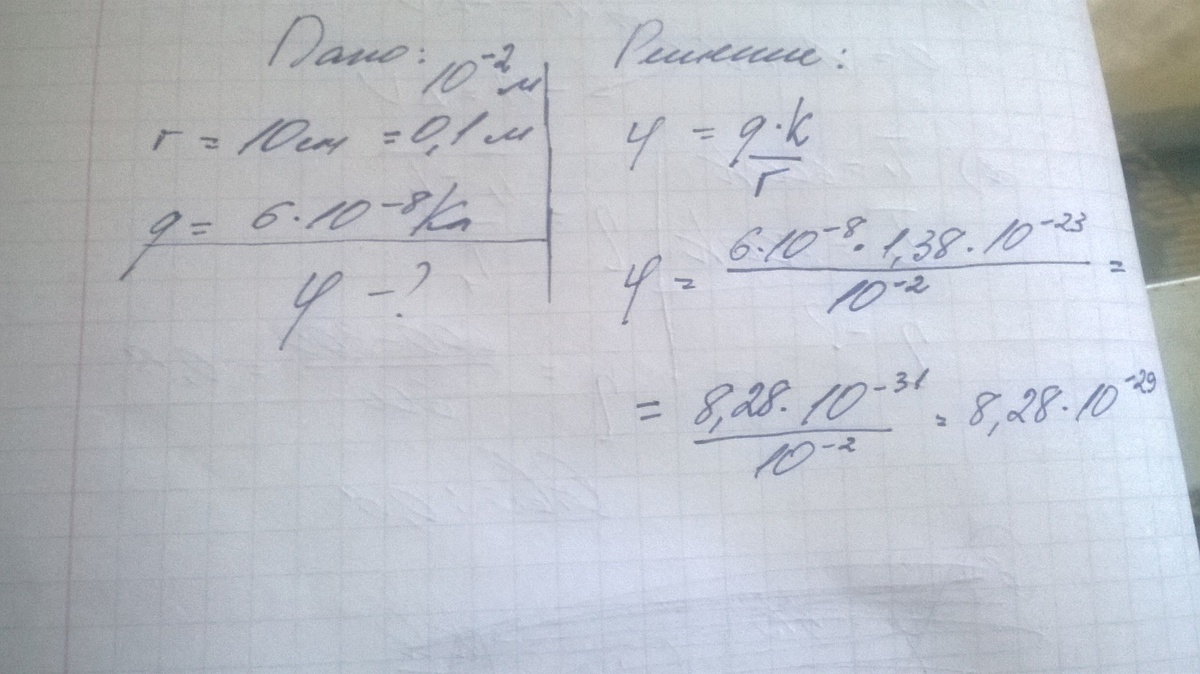 Дано:
10⁻² м
r = 10см = 0,1 м
q = 6·10⁻⁸ Кл
φ - ?
Решение:
φ = q·k / r
φ = 6·10⁻⁸·1,38·10⁻²³ / 10⁻² =
= 8,28·10⁻³¹ / 10⁻² = 8,28·10⁻²⁹